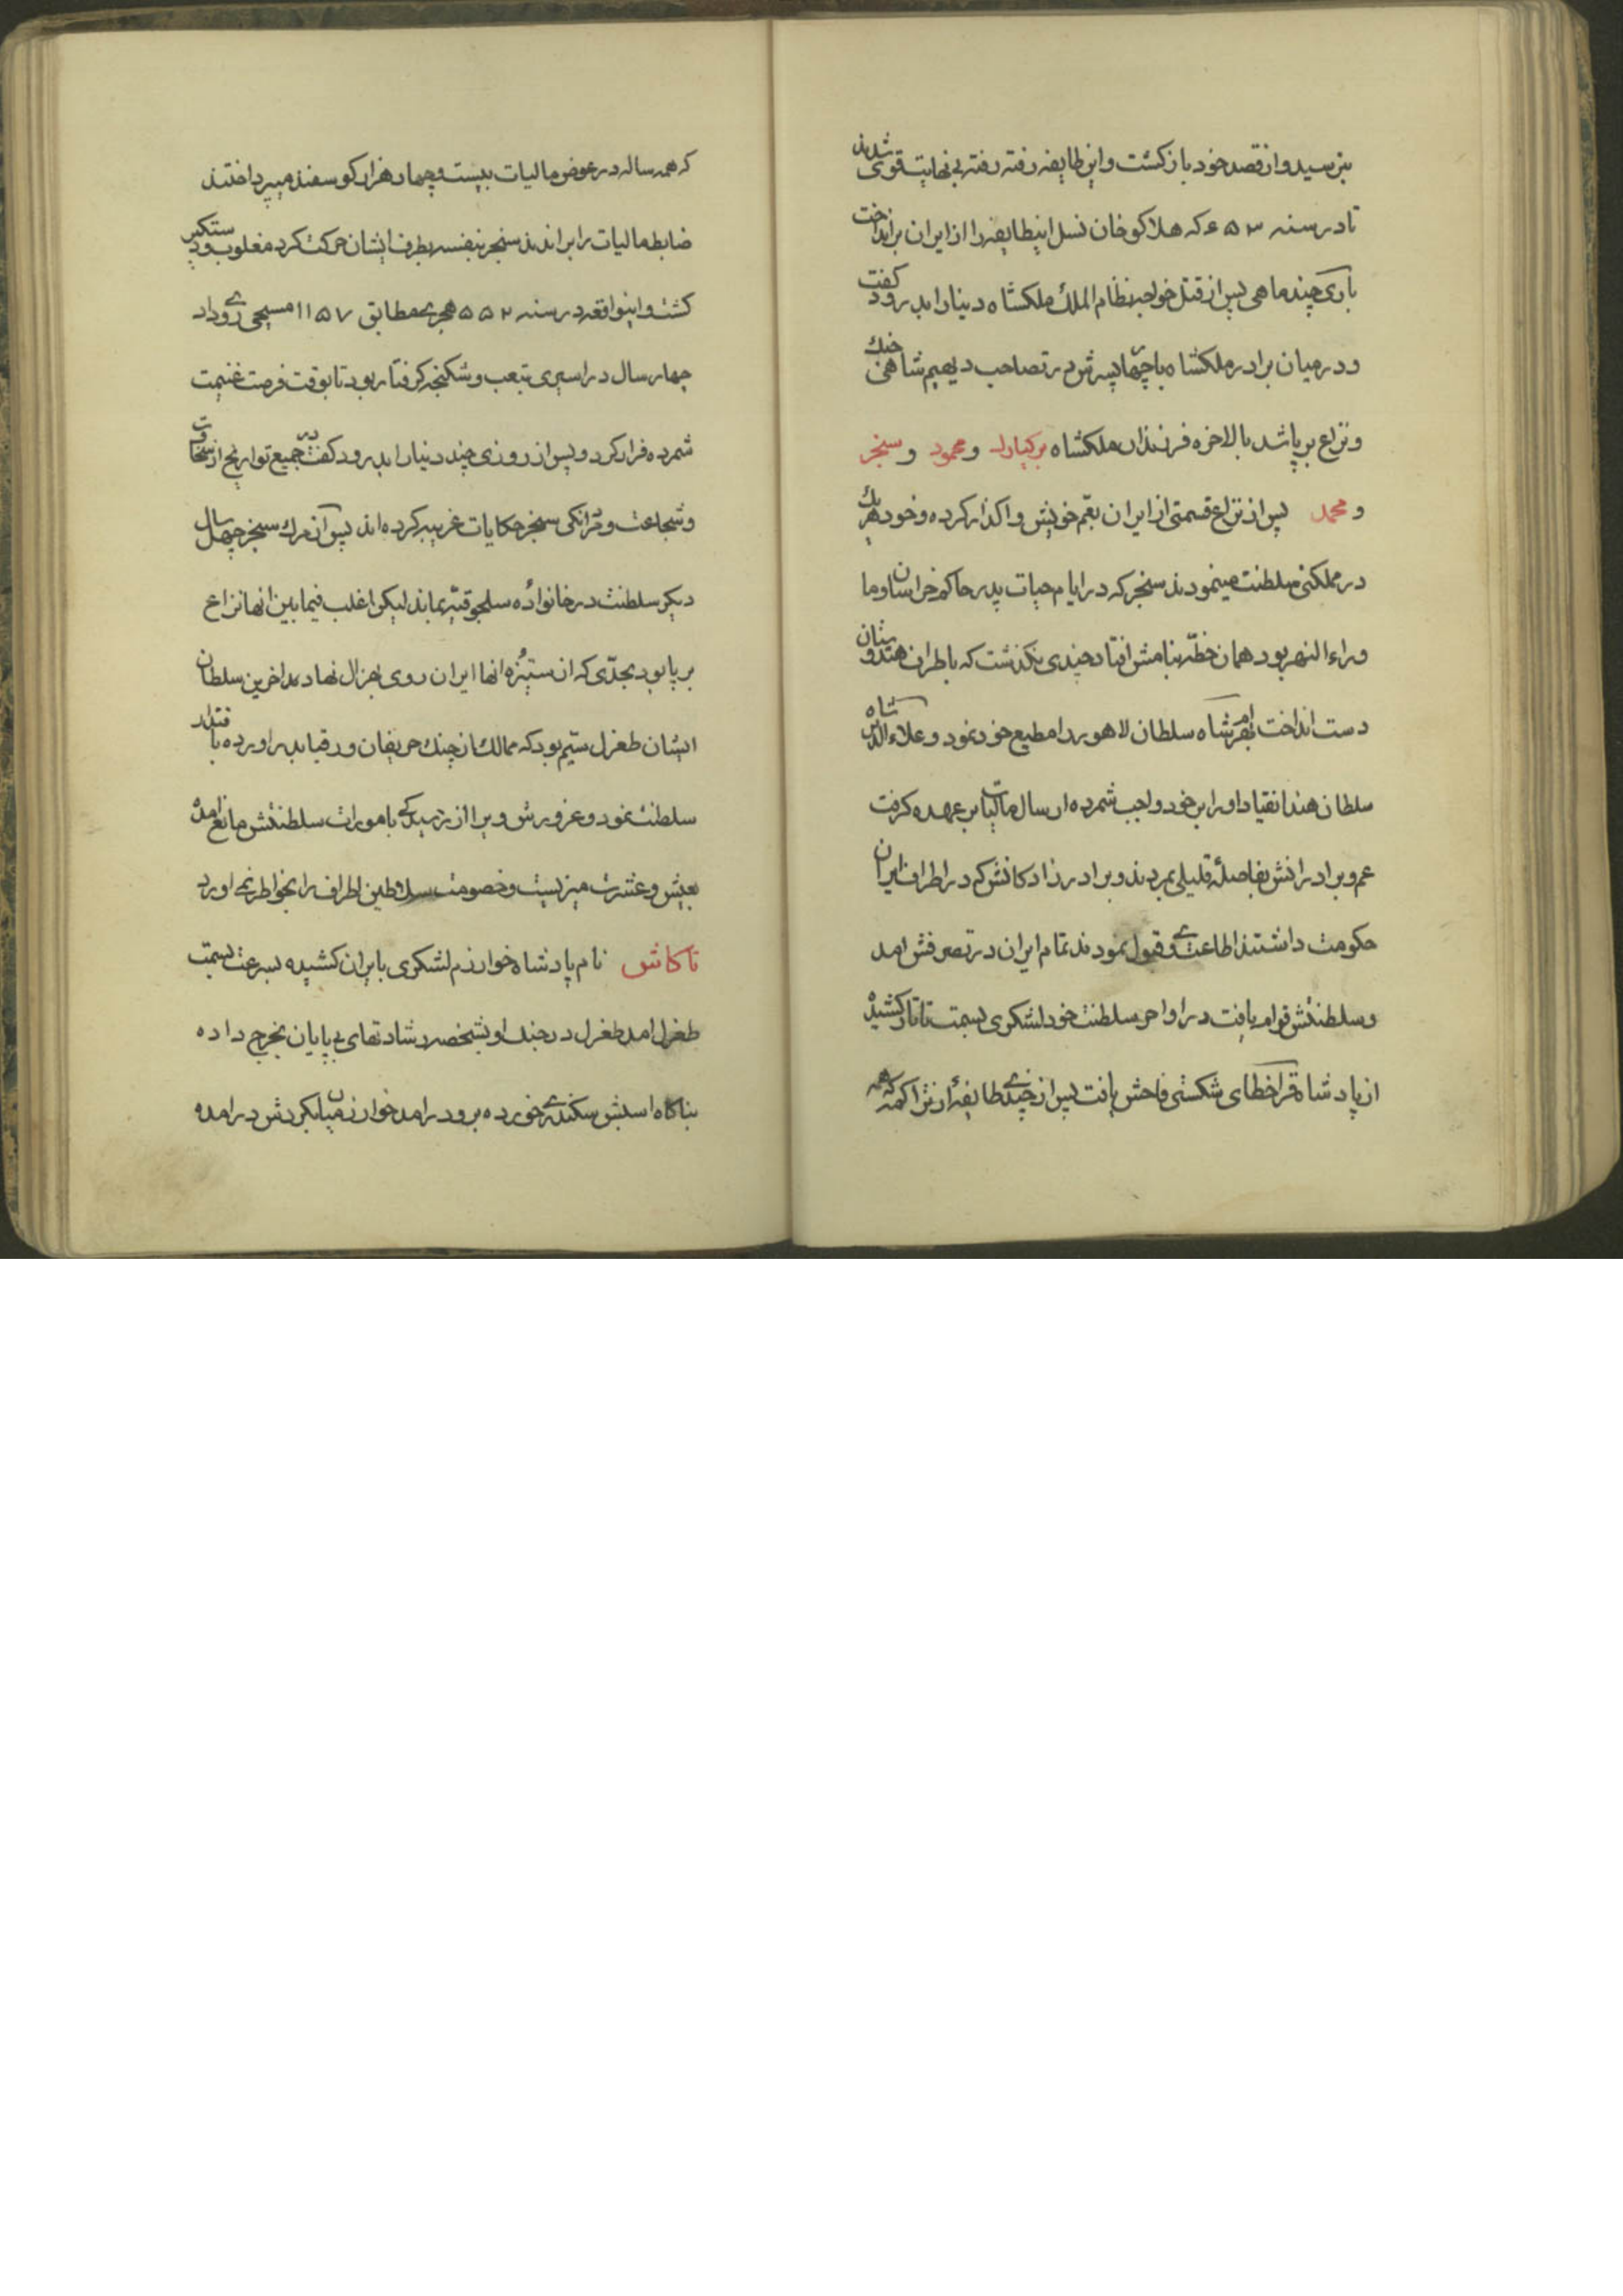 بترسید و از قصد خود باز کشت و این طایفه رفته رفته بی نهایت قوی شدند
تا در سنه ۶۵۳ که هلاکو خان نسل اینطایفه را از ایران برانداخت
باری چند ماهی پس از قتل خواجه نظام الملك ملکشاه دنیا را بدرود کفت
و در میان برادر ملکشاه با چهار پسرش در تصاحب دیهیم شاهی جنك
و نزاع بر پا شد بالاخره فرزندان ملکشاه برکیارد و محمود و سنجر
و محمد پس از نزاع قسمتی از ایران بعم خویش واکذار کرده و خود هر یك
در مملکتی سلطنت مینمودند سنجر که در ایام حیات پدر حاکم خراسان و ما
وراء النهر بود همان خطه بنامش افتاد چندی نکذشت که باطراف هندوستان
دست انداخت بهرامشاه سلطان لاهور را مطیع خود نمود و علاء الدین شاه
سلطان هند انقیاد او را بر خود واجب شمرده ارسال مالیات بر عهده کرفت
عم و برادرانش بفاصلهٔ قلیلی بمردند و برادر زادکانش که در اطراف ایران
حکومت داشتند اطاعت وی قبول نمودند تمام ایران در تصرفش امد
و سلطنتش قوام یافت در اواخر سلطنت خود لشکری بسمت تاتار کشیده
از پادشاه قراخطای شکستی فاحش یافت پس از چندی طایفهٔ از تراکمه
که همه ساله در عوض مالیات بیست و چهار هزار کوسفند میپرداختند
ضابط مالیات را براندند سنجر بنفسه بطرف ایشان حرکت کرد مغلوب و دستکیر
کشت و اینواقعه در سنه ۵۵۲ هجری مطابق ۱۱۵۷ مسیحی روی داد
چهار سال در اسیری بتعب و شکنجه کرفتار بود تا بوقت فرصت غنیمت
شمرده فرار کرد و پس از روزی چند دنیا را بدرود کفت در جمیع تواریخ از سخاوت
و شجاعت و مردانکی سنجر حکایات غریبه کرده اند پس از مرك سنجر چهل سال
دیکر سلطنت در خانواده سلجوقیه بماند لیکن اغلب فیما بین انها نزاع
بر پا بود بحدی که از ستیزه انها ایران روی بهزال نهاد بد اخرین سلطان
ایشان طغرل سیم بود که ممالك از چنك حریفان و رقبا بدر اورده با اقتدار
سلطنت نمود و غرورش ویرا از رسیدکی بامورات سلطنتش مانع امده
بعیش و عشرت میزیست و خصومت سلاطین اطراف را بخواطر نمی اورد
تاکاش نام پادشاه خوارزم لشکری بایران کشیده بسرعت بسمت
طغرل امد طغرل در جنك او بشخصه رشادتهای بی پایان بخرج داده
بناکاه اسبش سکندی خورده برو در امد خوارزمیان بکردش در امده